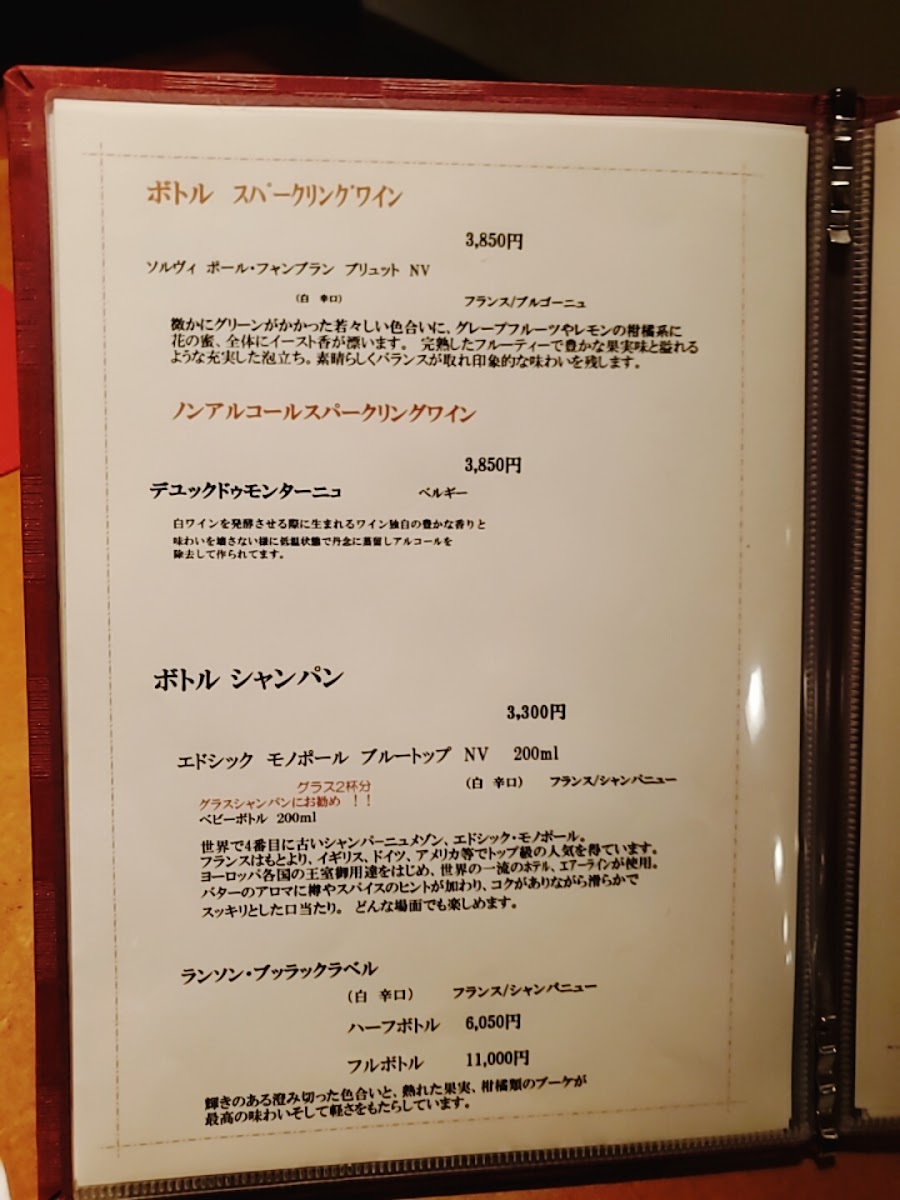 ボトル スパークリングワイン
3,850円
ソルヴィ ポール・フャンブラン ブリュット NV
(白 辛口) フランス/ブルゴーニュ
微かにグリーンがかかった若々しい色合いに、グレープフルーツやレモンの柑橘系に
花の蜜、全体にイースト香が漂います。 完熟したフルーティーで豊かな果実味と溢れる
ような充実した泡立ち。素晴らしくバランスが取れ印象的な味わいを残します。
ノンアルコールスパークリングワイン
3,850円
デュックドゥモンターニュ ベルギー
白ワインを発酵させる際に生まれるワイン独自の豊かな香りと
味わいを壊さない様に低温状態で丹念に蒸留しアルコールを
除去して作られてます。
ボトル シャンパン
3,300円
エドシック モノポール ブルートップ NV 200ml
(白 辛口) フランス/シャンパニュー
グラス2杯分
グラスシャンパンにお勧め !!
ベビーボトル 200ml
世界で4番目に古いシャンパーニュメゾン、エドシック・モノポール。
フランスはもとより、イギリス、ドイツ、アメリカ等でトップ級の人気を得ています。
ヨーロッパ各国の王室御用達をはじめ、世界の一流のホテル、エアーラインが使用。
バターのアロマに樽やスパイスのヒントが加わり、コクがありながら滑らかで
スッキリとした口当たり。 どんな場面でも楽しめます。
ランソン・ブッラックラベル
(白 辛口) フランス/シャンパニュー
ハーフボトル 6,050円
フルボトル 11,000円
輝きのある澄み切った色合いと、熟れた果実、柑橘類のブーケが
最高の味わいそして軽さをもたらしています。